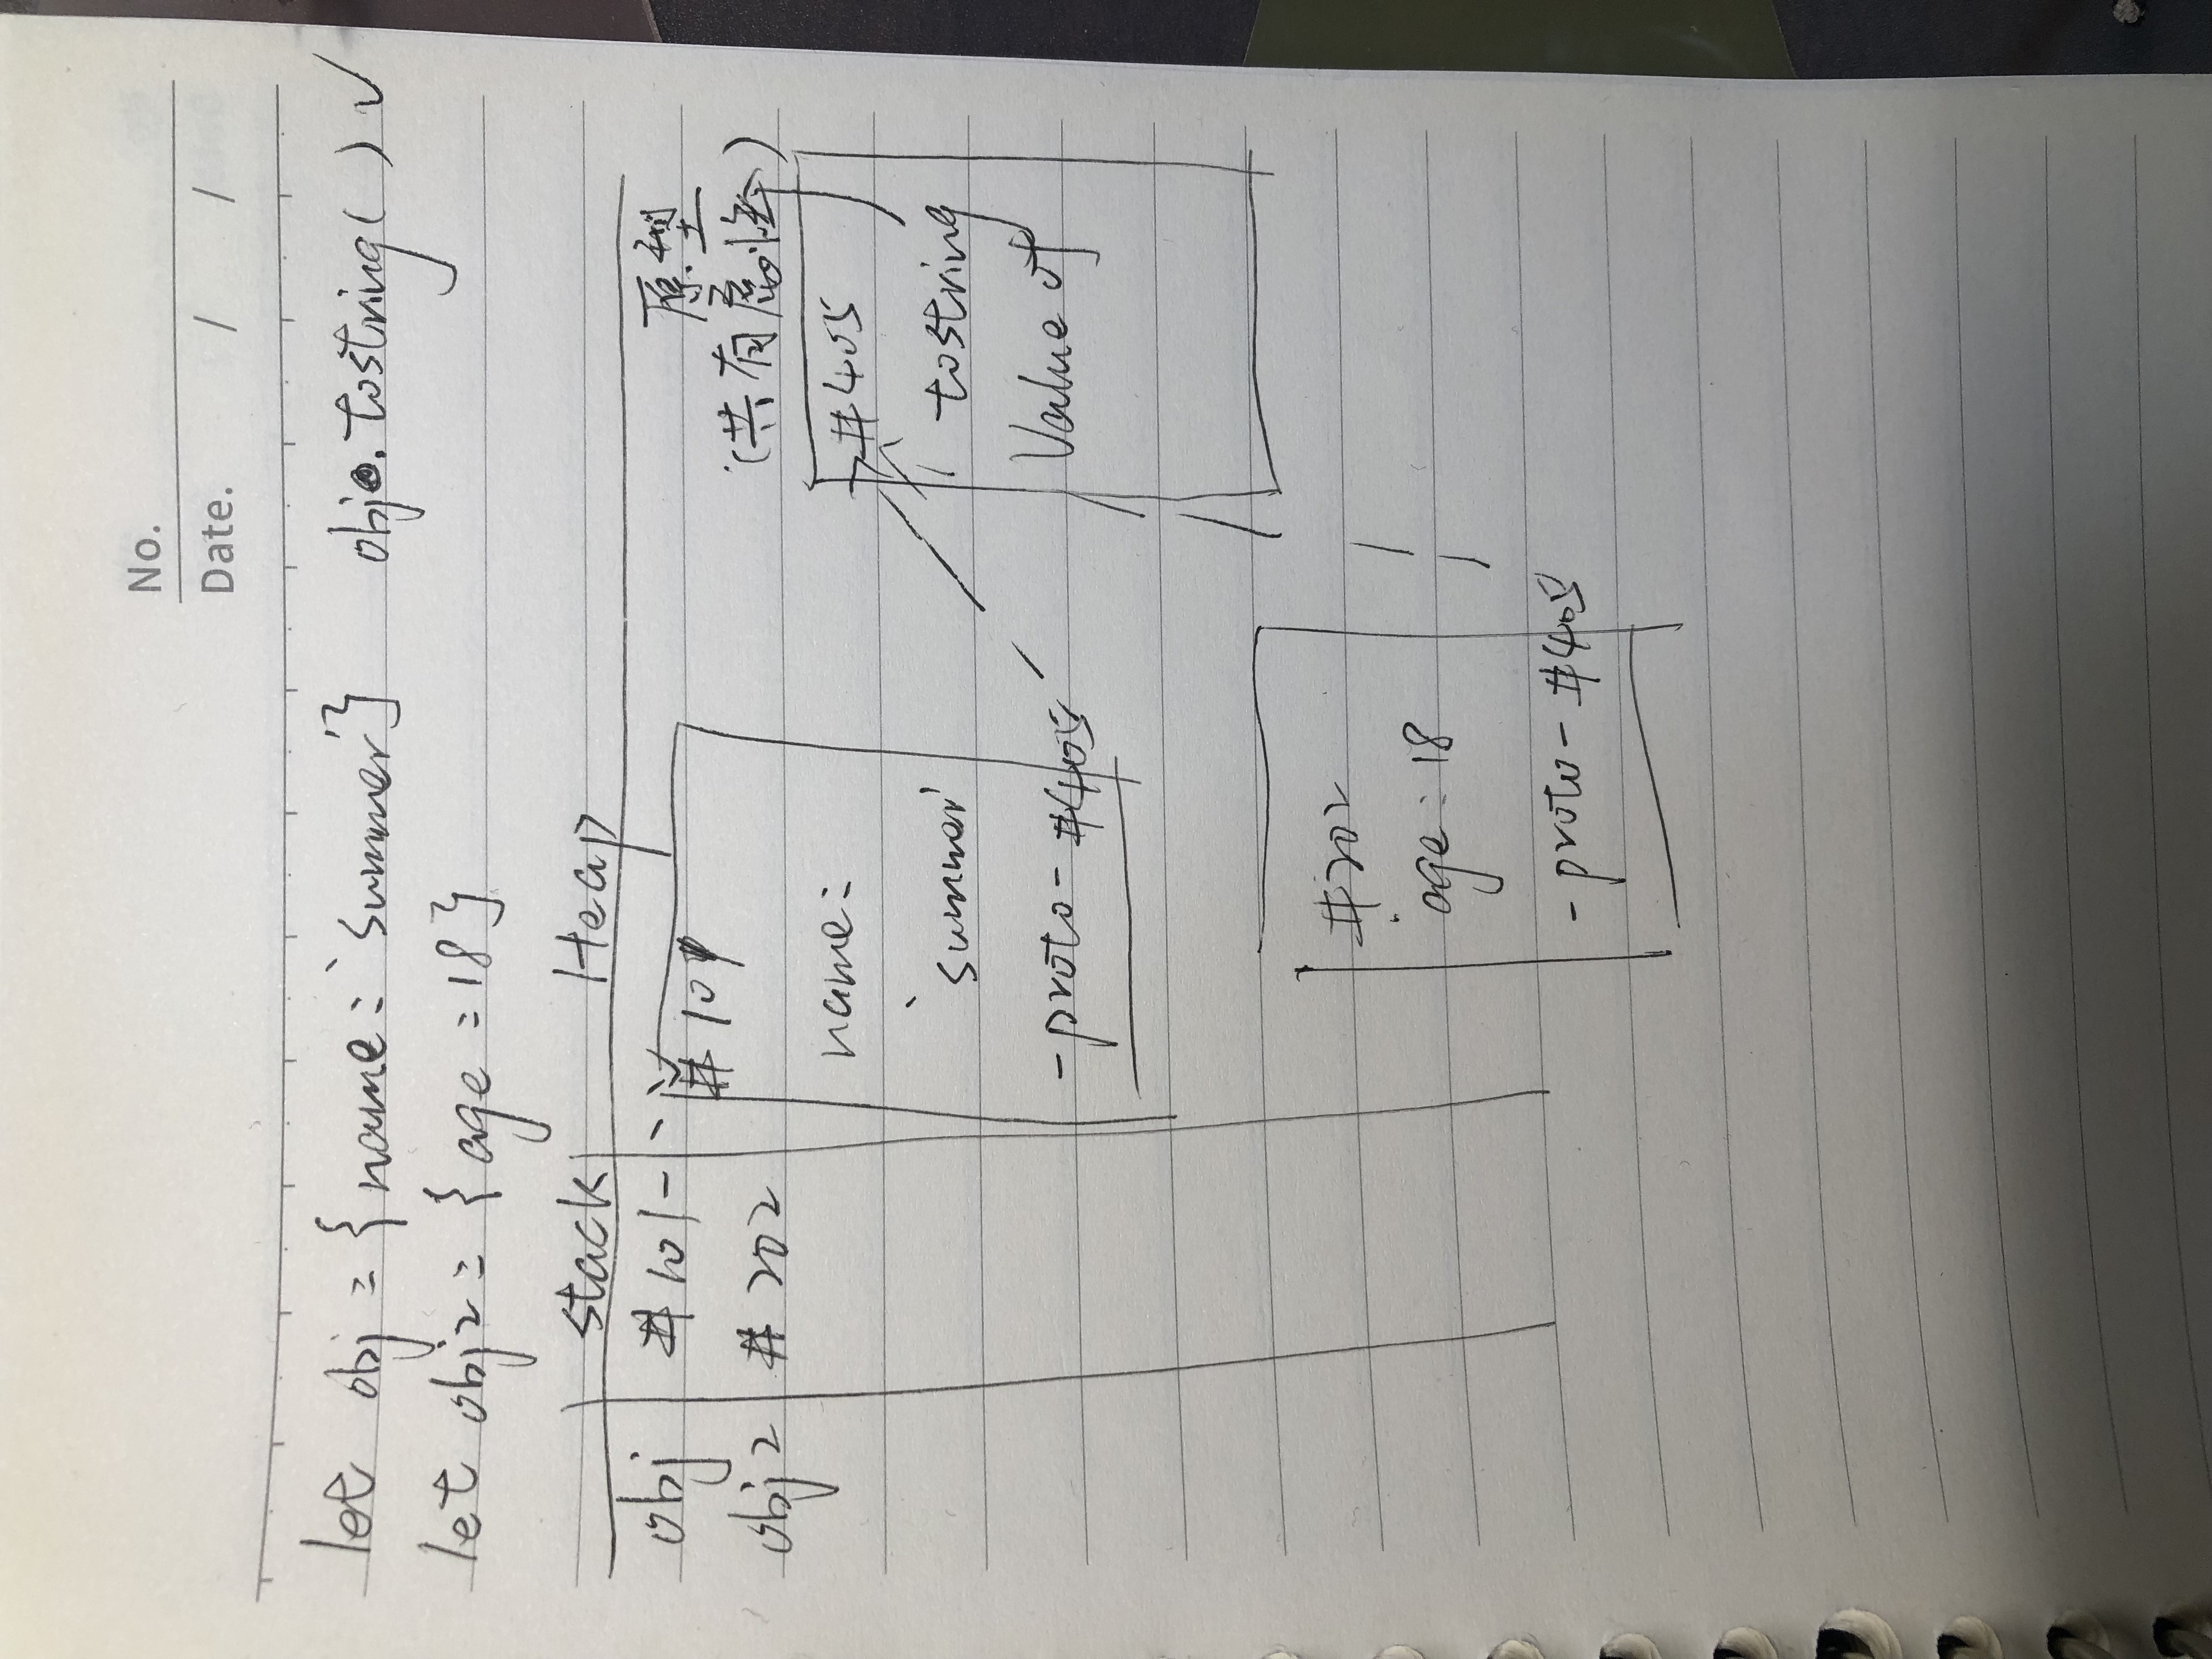 No.
Date. / /
let obj = {name: 'summer'} obj.tostring() ✓
let obj2 = {age:18}
stack Heap
obj #101
obj2 #202
#101
name:
'summer'
-proto- #405
原型
(共有属性)
#405
tostring
Value of
#202
age: 18
-proto- #405